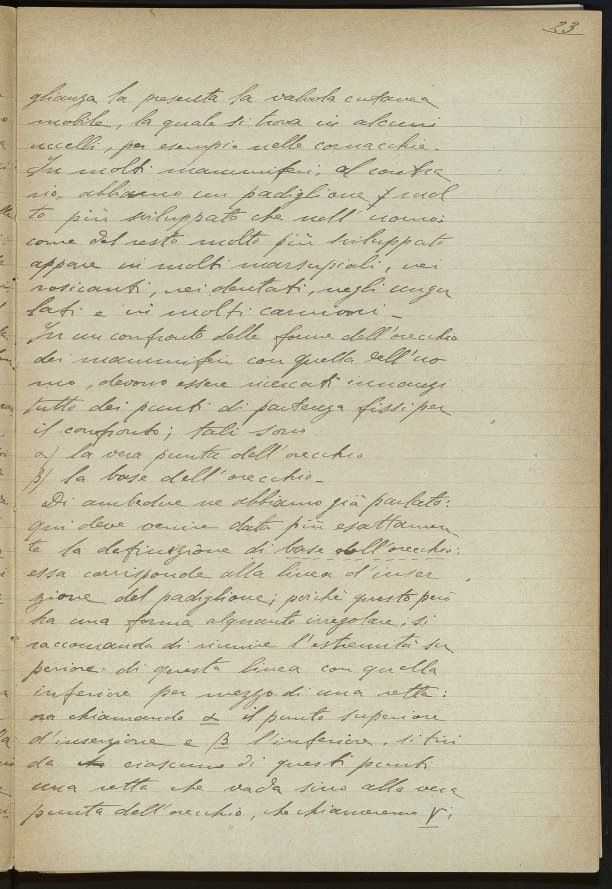 23
glianza la presenta la valvola cutanea
mobile, la quale si trova in alcuni
uccelli, per esempio nelle cornacchie.
In molti mammiferi, al contra
rio, abbiamo un padiglione mol
to più sviluppato che nell'uomo:
come del resto molto più sviluppato
appare in molti marsupiali, nei
rosicanti, nei dentati, negli ungu
lati e in molti carnivori_
In un confronto delle forme dell'orecchio
dei mammiferi con quella dell'uo
mo, devono essere ricercati innanzi
tutto dei punti di partenza fissi per
il confronto; tali sono
α) la vera punta dell'orecchio
β) la base dell'orecchio_
Di ambedue ne abbiamo già parlato:
qui deve venire data più esattamen
te la definizione di base dell'orecchio:
essa corrisponde alla linea d'inser
zione del padiglione; poichè questo però
ha una forma alquanto irregolare, si
raccomanda di riunire l'estremità su
periore di questa linea con quella
inferiore per mezzo di una retta:
ora chiamando α il punto superiore
d'inserzione e β l'inferiore, si tiri
da ciascuno di questi punti
una retta che vada sino alla vera
punta dell'orecchio, che chiameremo γ;